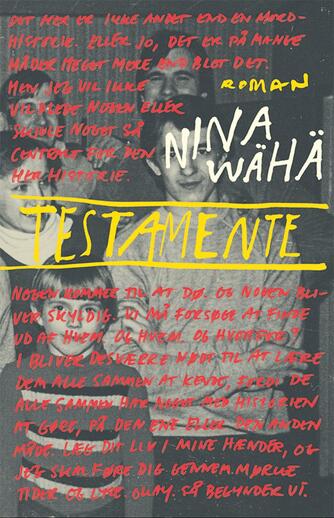 DET HER ER IKKE ANDET END EN MORD-
HISTORIE. ELLER JO, DET ER PÅ MANGE
MÅDER MEGET MERE END BLOT DET.
MEN JEG VIL IKKE
VILDLEDE NOGEN ELLER
SKJULE NOGET SÅ
CENTRALT FOR DEN
HER HISTORIE.
ROMAN
NINA
WÄHÄ
TESTAMENTE
NOGEN KOMMER TIL AT DØ. OG NOGEN BLI-
VER SKYLDIG. VI MÅ FORSØGE AT FINDE
UD AF HVEM. OG HVEM. OG HVORFOR?
I BLIVER DESVÆRRE NØDT TIL AT LÆRE
DEM ALLE SAMMEN AT KENDE, FORDI DE
ALLE SAMMEN HAR NOGET MED HISTORIEN
AT GØRE, PÅ DEN ENE ELLER DEN ANDEN
MÅDE. LÆG DIT LIV I MINE HÆNDER, OG
JEG SKAL FØRE DIG GENNEM MØRKE
TIDER OG LYSE. OKAY. SÅ BEGYNDER VI.